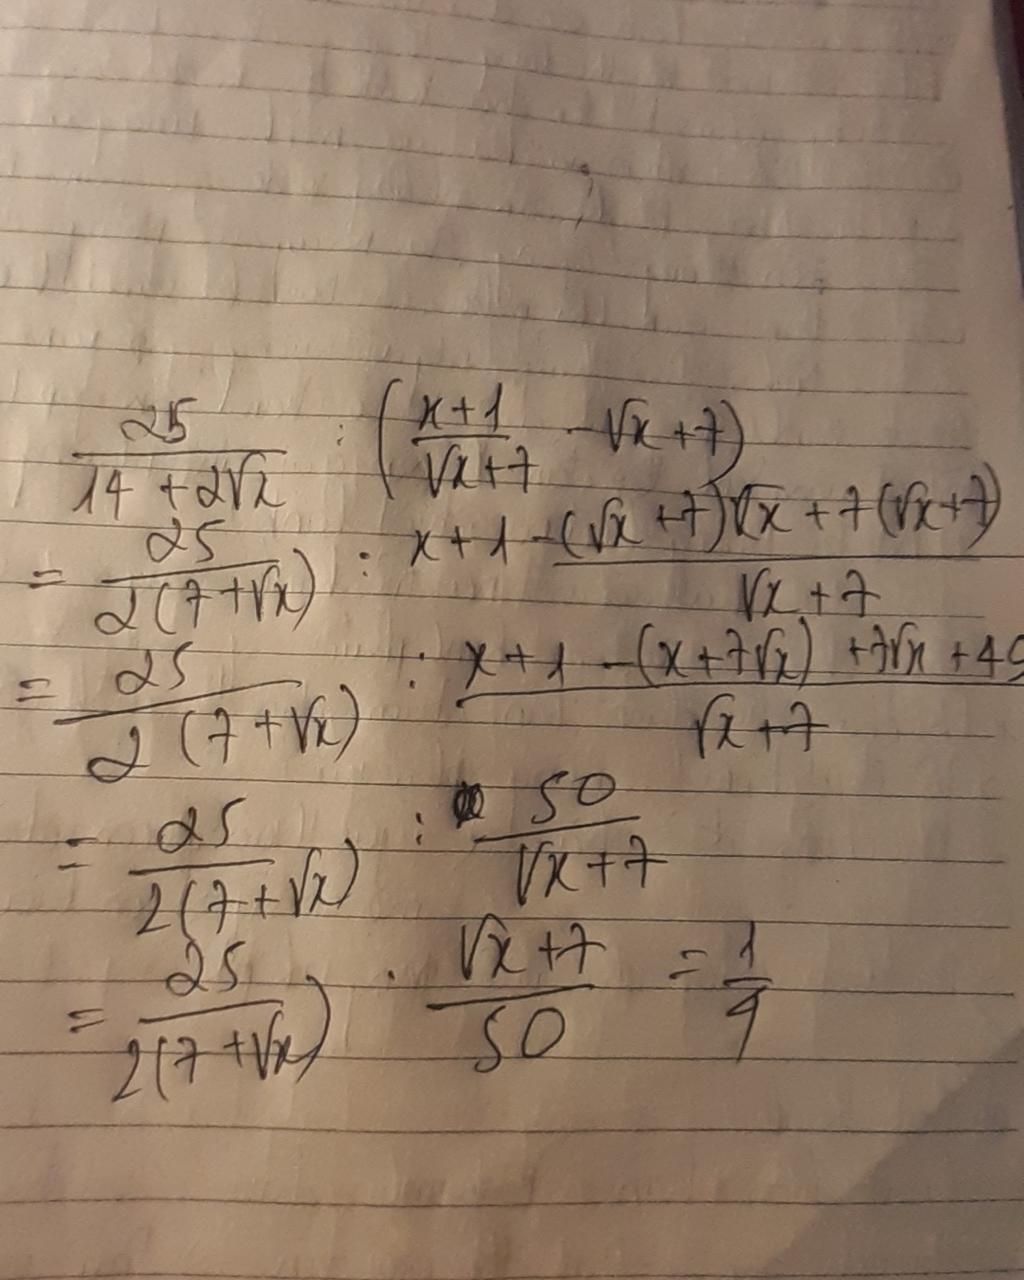 25/(14 + 2√x) : ( (x+1)/(√x+7) - √x + 7 )
= 25/(2(7+√x)) : (x+1 - (√x+7)√x + 7(√x+7))/(√x+7)
= 25/(2(7+√x)) : (x+1 - (x+7√x) + 7√x + 49)/(√x+7)
= 25/(2(7+√x)) : 50/(√x+7)
= 25/(2(7+√x)) . (√x+7)/50 = 1/4